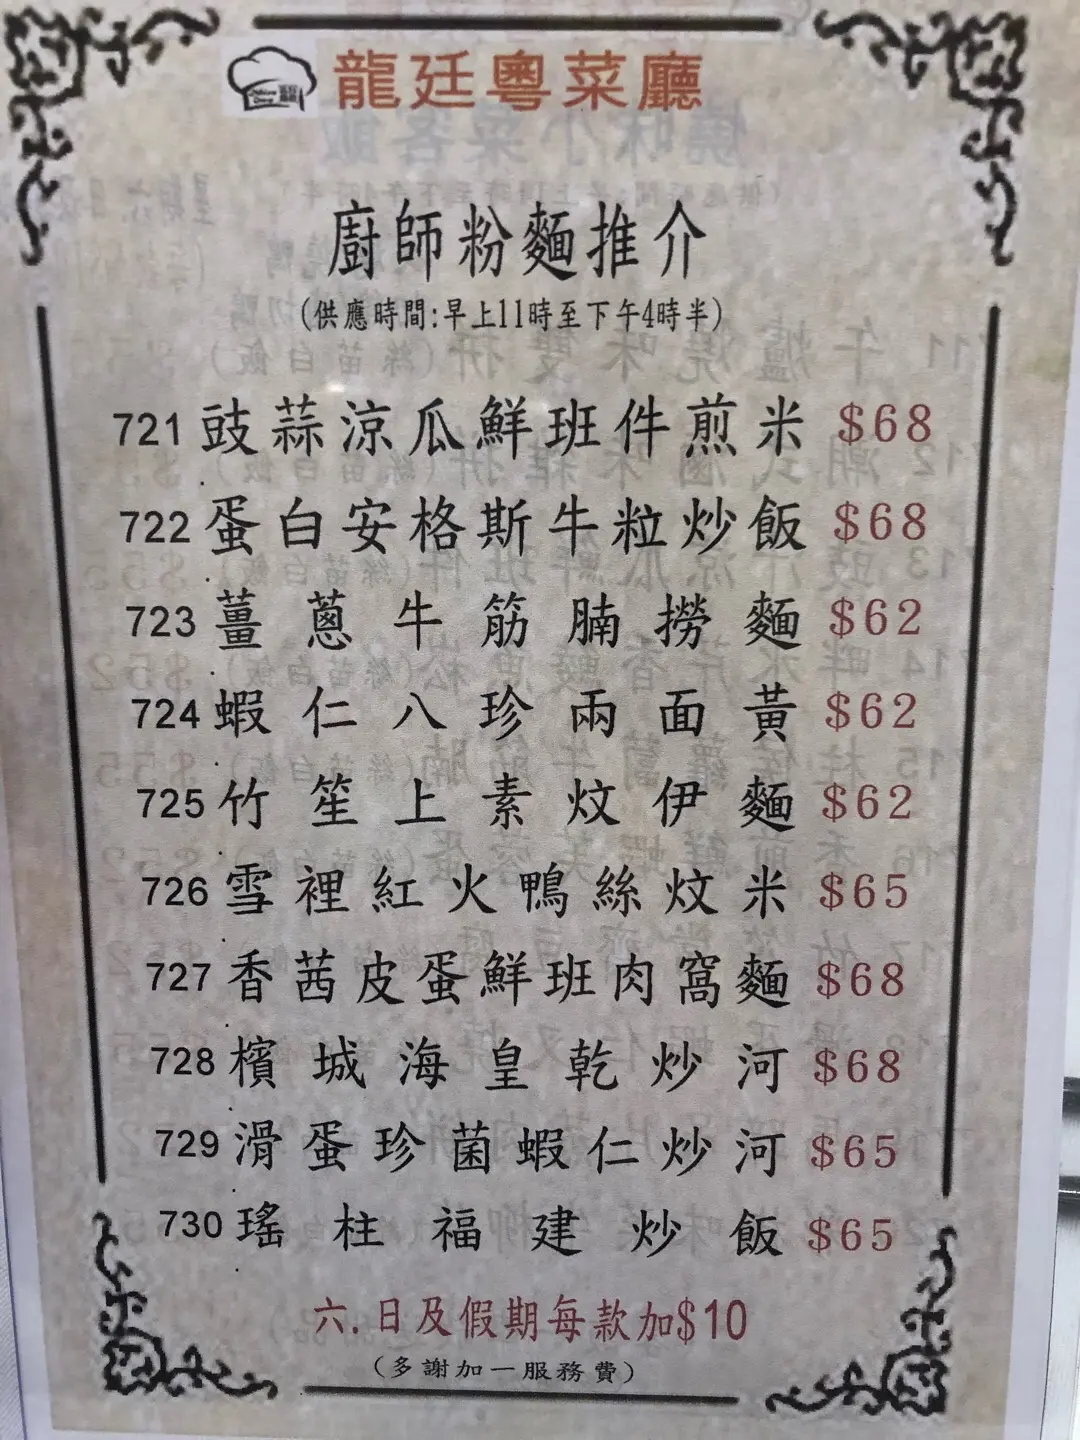 龍廷粵菜廳
廚師粉麵推介
(供應時間:早上11時至下午4時半)
721 豉蒜涼瓜鮮班件煎米 $68
722 蛋白安格斯牛粒炒飯 $68
723 薑蔥牛筋腩撈麵 $62
724 蝦仁八珍兩面黃 $62
725 竹笙上素炆伊麵 $62
726 雪裡紅火鴨絲炆米 $65
727 香茜皮蛋鮮班肉窩麵 $68
728 檳城海皇乾炒河 $68
729 滑蛋珍菌蝦仁炒河 $65
730 瑤柱福建炒飯 $65
六.日及假期每款加$10
(多謝加一服務費)